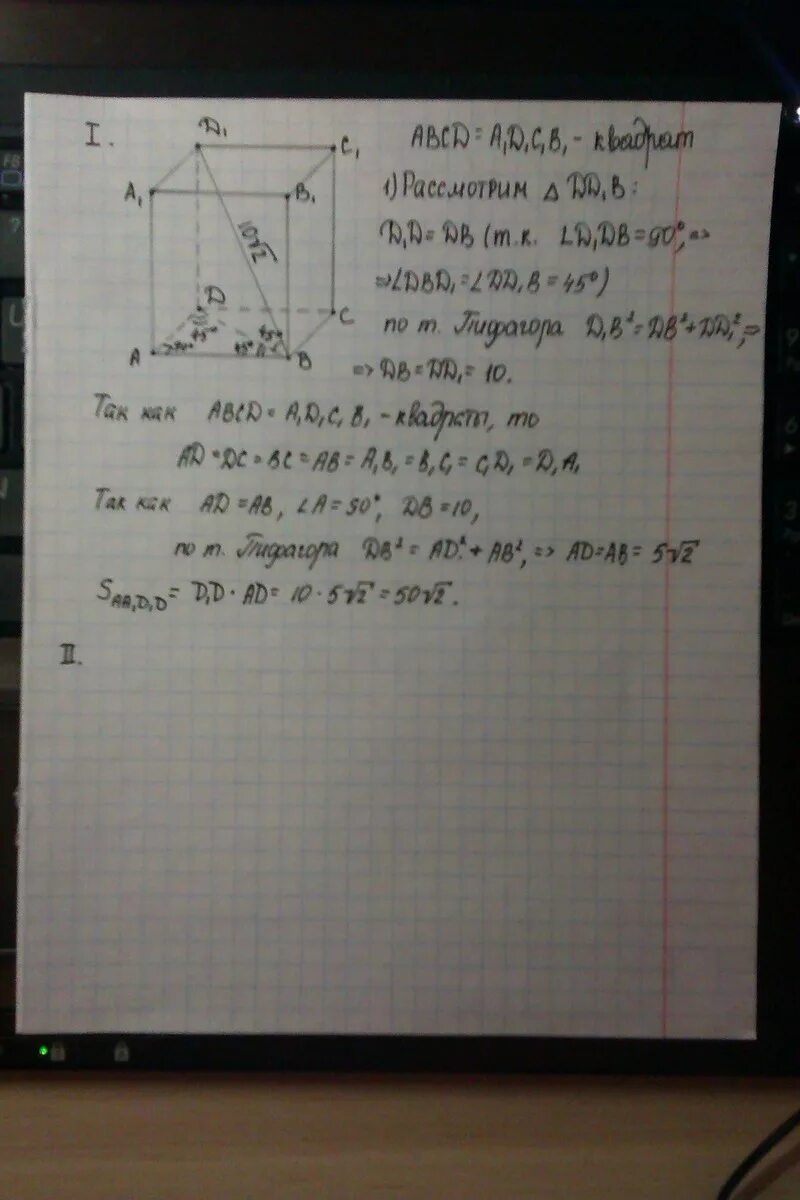 I.
D₁
C₁
A₁
B₁
10√2
D
C
A
B
45°
45°
45°
ABCD = A₁D₁C₁B₁ - квадрат
1) Рассмотрим △ DD₁B:
D₁D = DB (т.к. ∠D₁DB = 90°, =>
=> ∠DBD₁ = ∠DD₁B = 45°)
по т. Пифагора D₁B² = DB² + DD₁², =>
=> DB = DD₁ = 10.
Так как ABCD = A₁D₁C₁B₁ - квадраты, то
AD = DC = BC = AB = A₁B₁ = B₁C₁ = C₁D₁ = D₁A₁
Так как AD = AB, ∠A = 90°, DB = 10,
по т. Пифагора DB² = AD² + AB², => AD = AB = 5√2
S_AA₁D₁D = D₁D · AD = 10 · 5√2 = 50√2.
II.